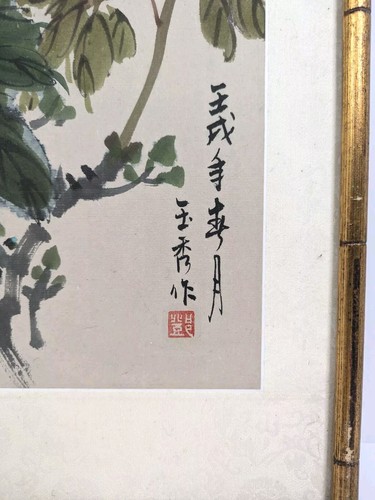 壬戌年春月
玉秀作